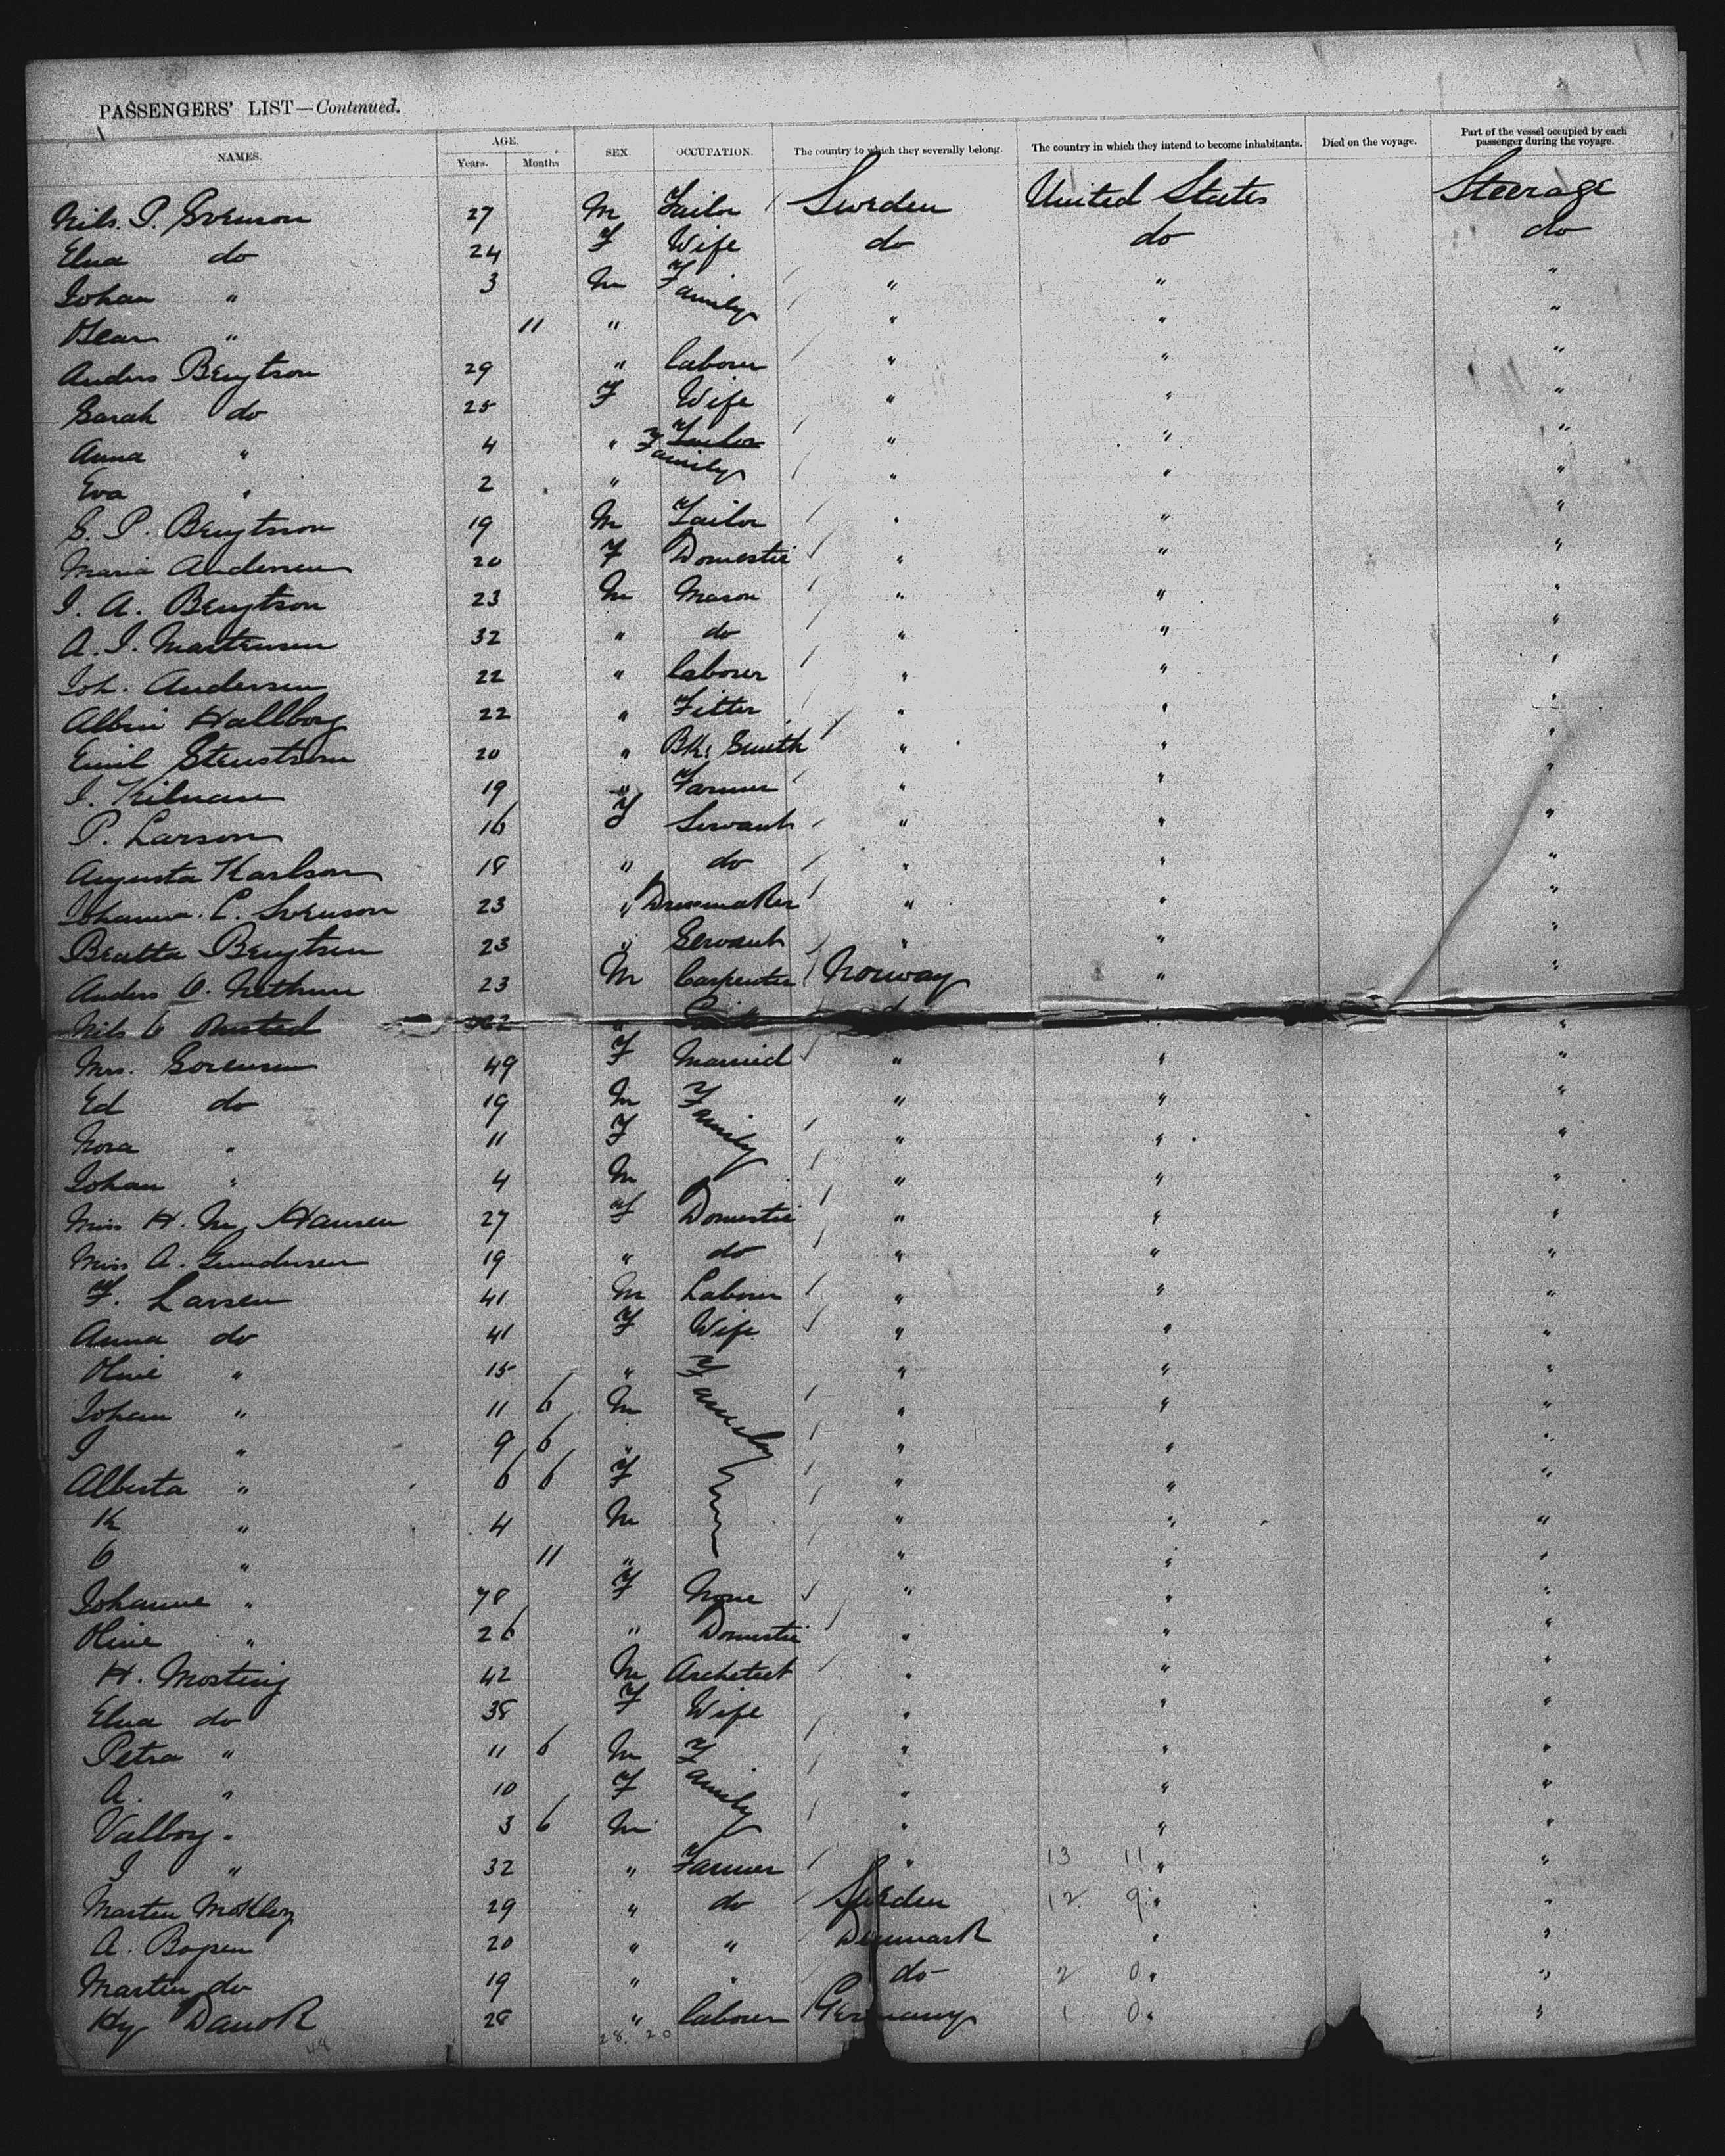 PASSENGERS' LIST—Continued.
NAMES. AGE. Years. Months SEX OCCUPATION. The country to which they severally belong. The country in which they intend to become inhabitants. Died on the voyage. Part of the vessel occupied by each passenger during the voyage.
Nils. P. Svenson 27 M Tailor Sweden United States Steerage
Elna do 24 F Wife do do do
Johan " 3 M Family " " "
Oscar " 11 " " " "
Anders Bengtson 29 " Labourer " " "
Sarah do 25 F Wife " " "
Anna " 4 " Family " " "
Eva " 2 " " " "
S. P. Bengtsson 19 M Tailor " " "
Maria Andersen 20 F Domestic " " "
J. A. Bengtson 23 M Mason " " "
A. J. Martensen 32 " do " " "
Joh. Andersen 22 " Laborer " " "
Albin Hallborg 22 " Fitter " " "
Emil Stenstrom 20 " Bk. Smith " " "
J. Kilman 19 " Farmer " " "
P. Larson 16 F Servant " " "
Augusta Karlson 18 " do " " "
Johanna. C. Svenson 23 " Dressmaker " " "
Beatta Bengtsen 23 " Servant " " "
Anders O. 23 M Carpenter Norway " "
Nils O " " "
Mrs. Sorensen 49 F Married " " "
Ed do 19 M Family " " "
Nora " 11 F " " "
Johan " 4 M " " "
Miss H. M. Hansen 27 F Domestic " " "
Miss A. Gundersen 19 " do " " "
F. Larsen 41 M Labourer " " "
Anna do 41 F Wife " " "
Oline " 15 " Family " " "
Johan " 11 6 M " " "
J " 9 6 " " " "
Alberta " 6 6 F " " "
K " 4 M " " "
O " 11 " " " "
Johanne " 78 F None " " "
Oline " 26 " Domestic " " "
H. Mosting 42 M Architect " " "
Elna do 38 F Wife " " "
Petra " 11 6 M Family " " "
A. " 10 F " " "
Valborg " 3 6 M " " "
J " 32 " Farmer " 13 11 " "
Marten 29 " do Sweden 12 9 " "
A. Bopen 20 " " Denmark " "
Martin do 19 " " do 2 0 " "
Hy Danok 28 " Labourer Germany 1 0 " "
48 28. 20